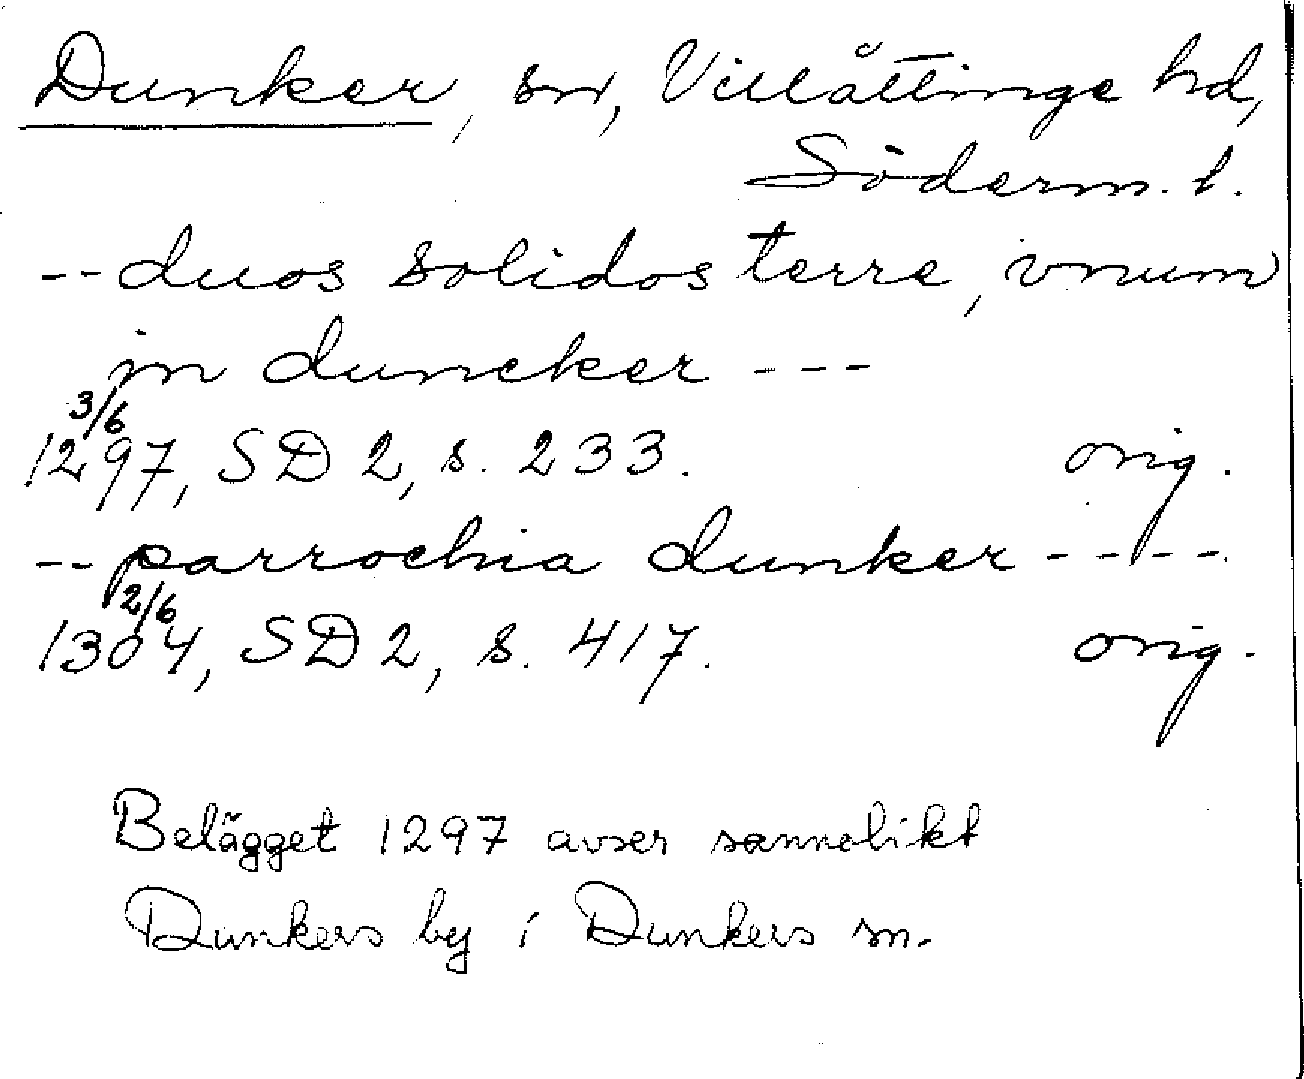 Dunker, sn, Villåttinge hd,
Söderm. l.
-- duos solidos terre, vnum
in duncker ---
3/6
1297, SD 2, s. 233. orig.
-- parrochia dunker ----.
2/6
1304, SD 2, s. 417. orig.
Belägget 1297 avser sannolikt
Dunkers by i Dunkers sn.